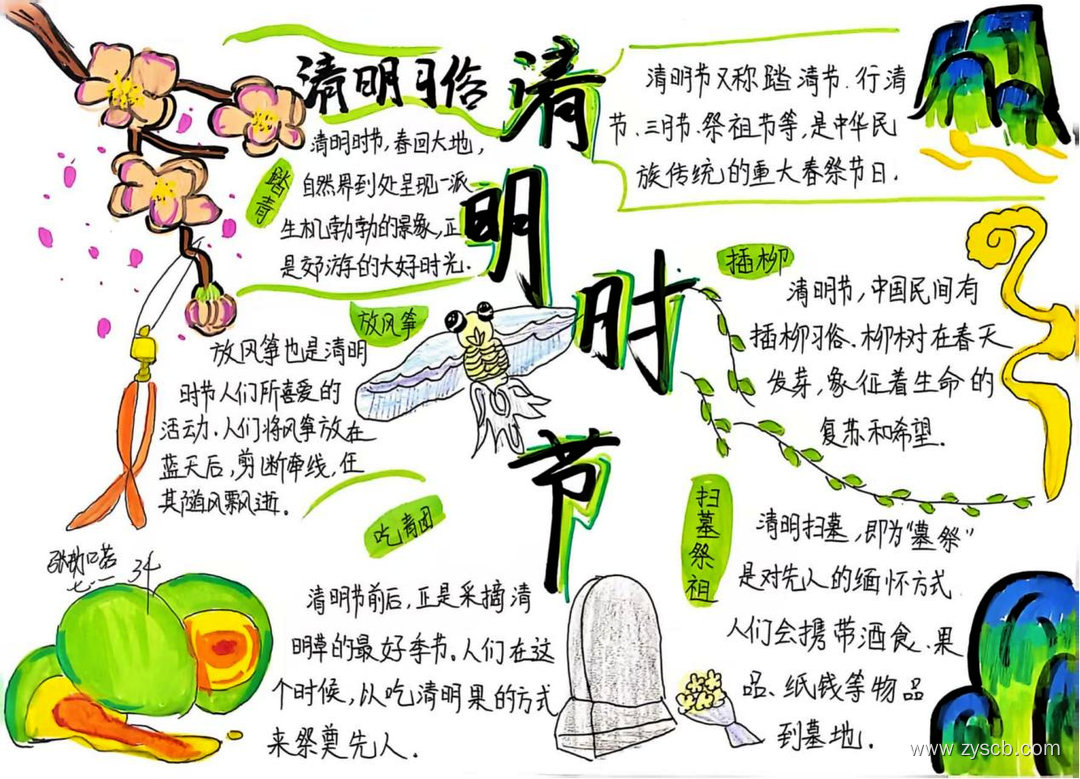 清明时节
清明习俗
清明节又称踏清节、行清
节、三月节、祭祖节等,是中华民
族传统的重大春祭节日.
踏青
清明时节,春回大地,
自然界到处呈现一派
生机勃勃的景象,正
是郊游的大好时光.
放风筝
放风筝也是清明
时节人们所喜爱的
活动.人们将风筝放在
蓝天后,剪断牵线,任
其随风飘逝.
插柳
清明节,中国民间有
插柳习俗.柳树在春天
发芽,象征着生命的
复苏和希望.
吃青团
清明节前后,正是采摘清
明草的最好季节.人们在这
个时候,以吃清明果的方式
来祭奠先人.
扫墓祭祖
清明扫墓,即为“墓祭”
是对先人的缅怀方式
人们会携带酒食、果
品、纸钱等物品
到墓地.
34
www.zyscb.com